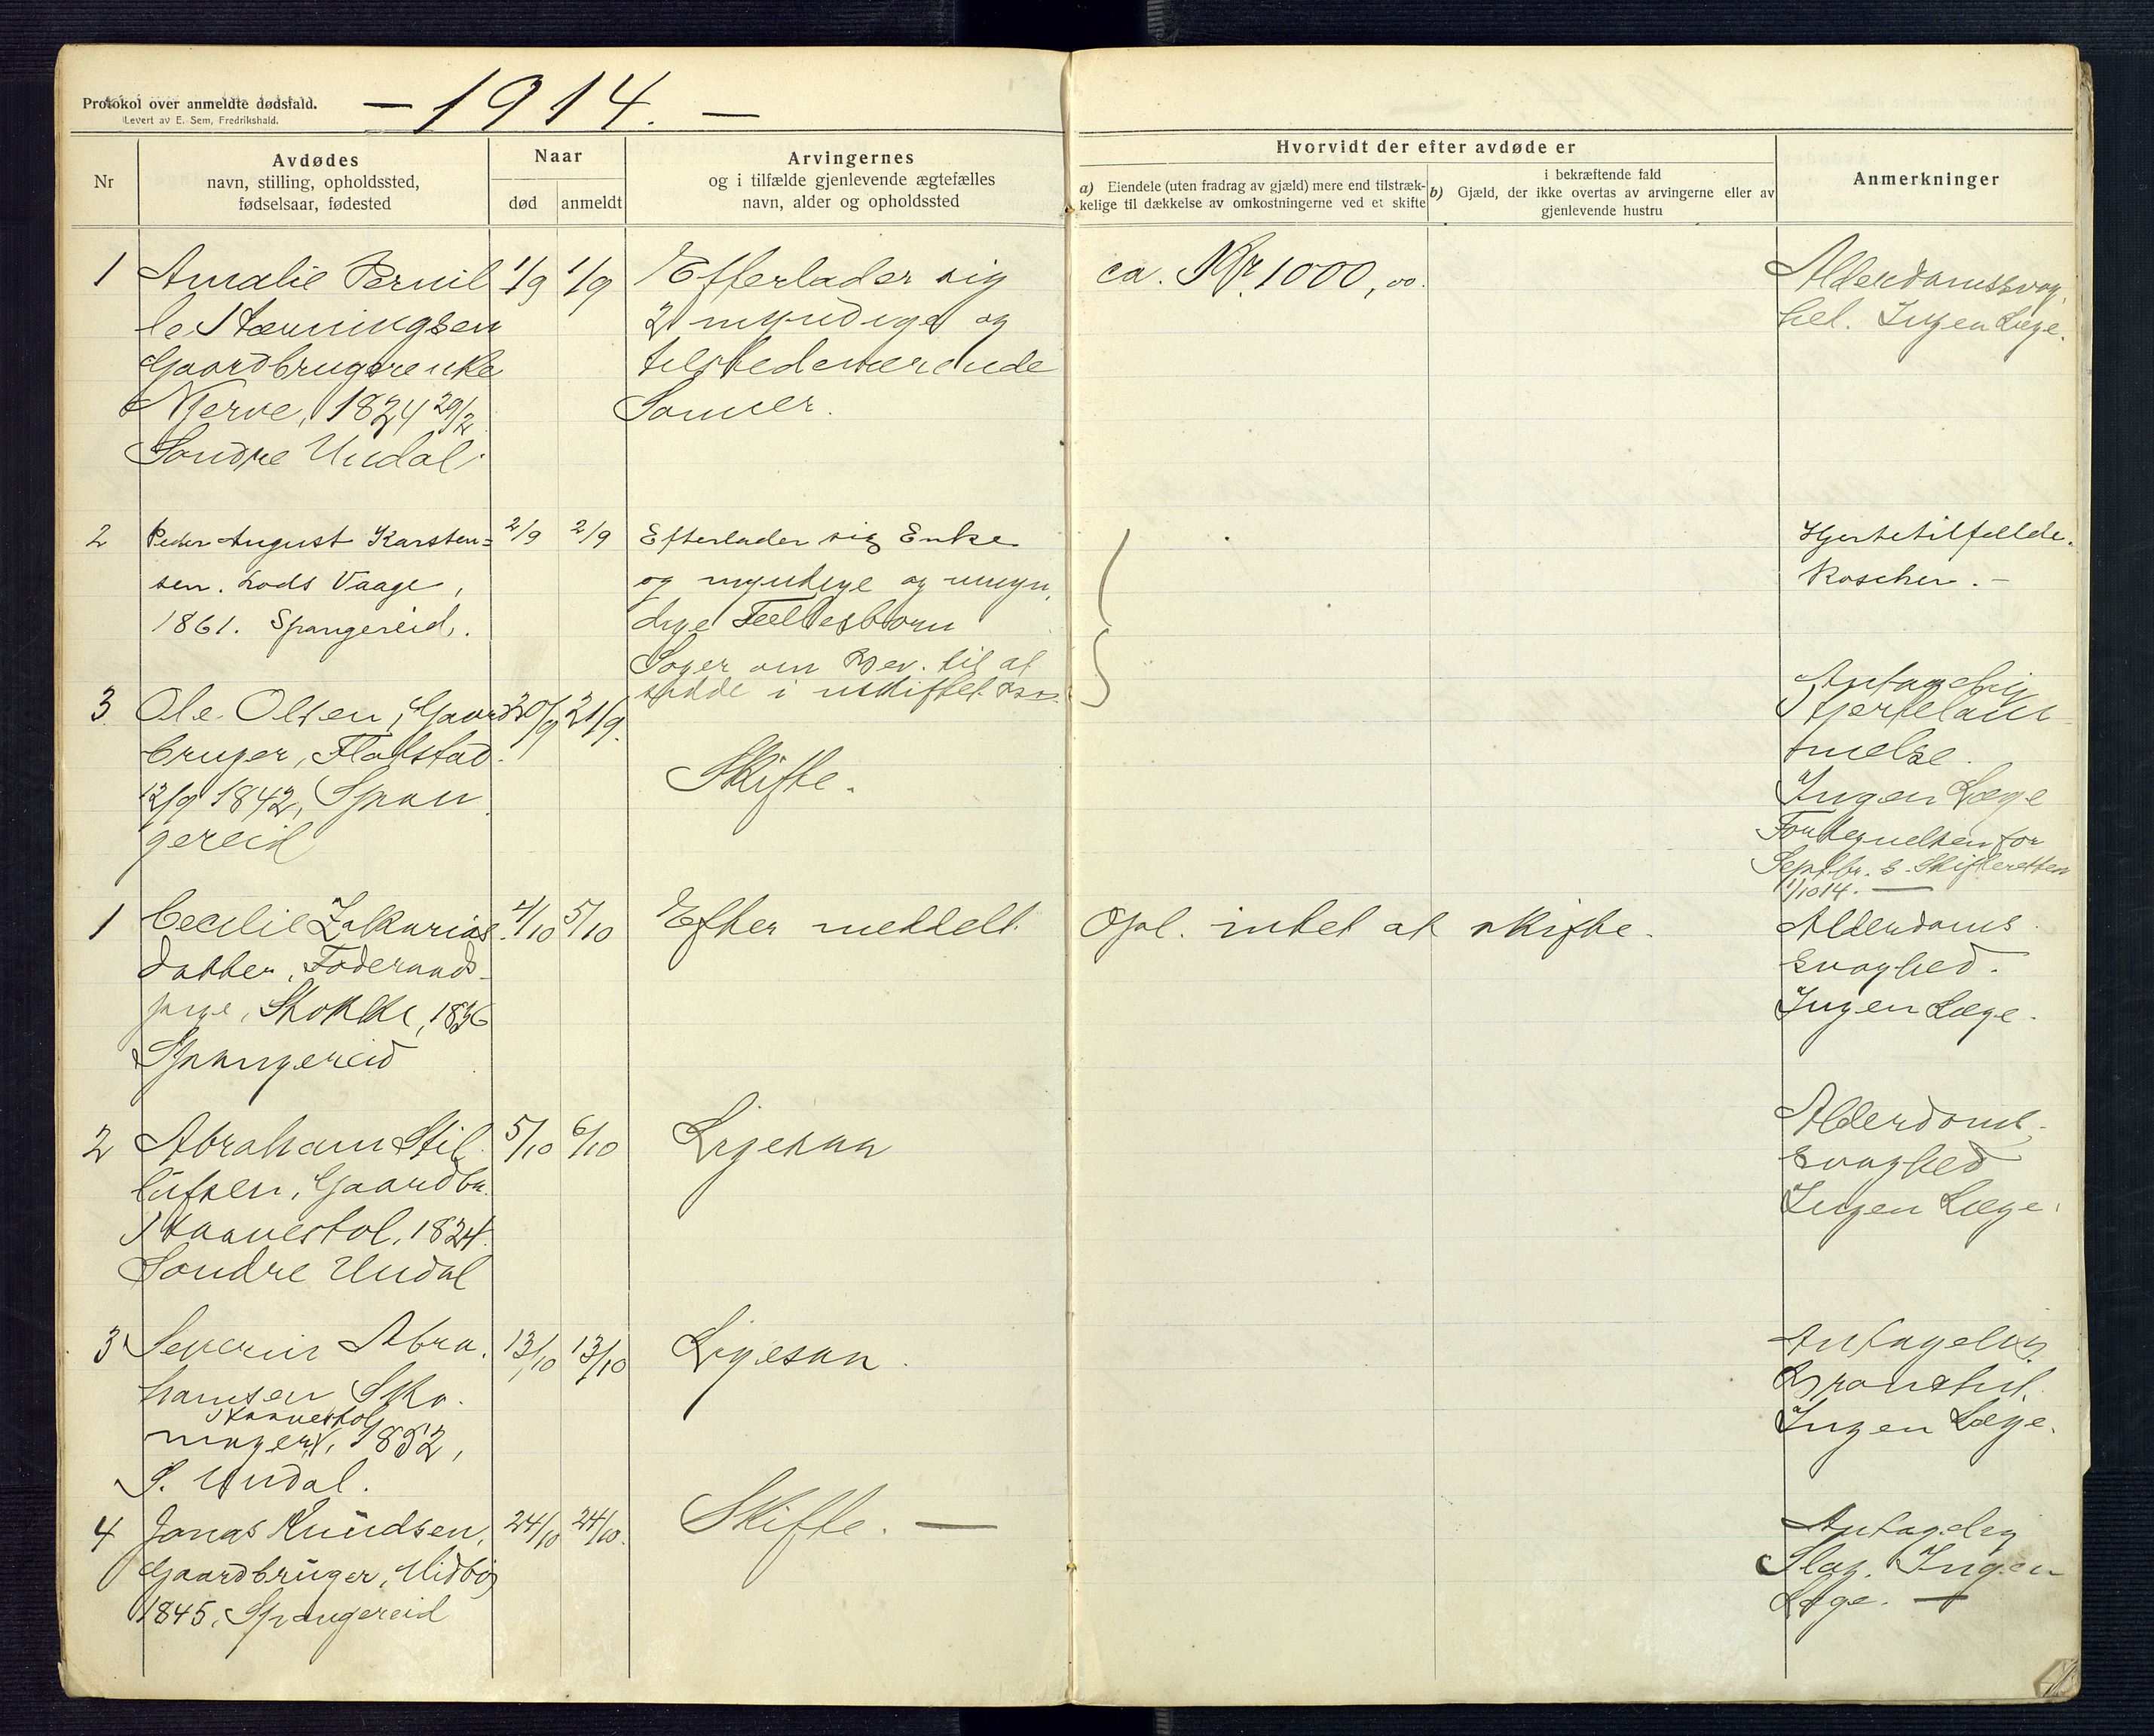 Protokol over anmeldte dødsfald.
Levert av E. Sem, Fredrikshald.
— 1914. —
Nr
Avdødes
navn, stilling, opholdssted,
fødselsaar, fødested
Naar
død
anmeldt
Arvingernes
og i tilfælde gjenlevende ægtefælles
navn, alder og opholdssted
Hvorvidt der efter avdøde er
a) Eiendele (uten fradrag av gjæld) mere end tilstræk-
kelige til dækkelse av omkostningerne ved et skifte
i bekræftende fald
b) Gjæld, der ikke overtas av arvingerne eller av
gjenlevende hustru
Anmerkninger
1
Amalie Pernil
le Hærningsen
Gaardbrugerenke
Njerve, 1824 29/2
Söndre Undal
1/9
1/9
Efterlader sig
2 myndige og
tilstedeværende
Sönner.
ca. Kr. 1000,00.
Alderdomssvag
hed. Ingen Læge.
2
Peder August Karsten=
sen. Lods Vaage,
1861. Spangereid.
2/9
2/9
Efterlader sig Enke
og myndige og umyn,
dige Fællesbörn
Söger om Bev. til at
sidde i uskiftet Bo.
Hjertetilfælde.
Roscher. -
3
Ole Olsen, Gaard
bruger, Flatstad.
12/9 1842, Span
gereid
20/9
21/9.
Skifte.
Antagelig
Hjertelam
melse.
Ingen Læge
Fortegnelsen for
Septbr. s. Skifteretten
1/10 14. —
1
Cecilie Zakarias
datter, Föderaads
pige, Stokke, 1836
Spangereid
4/10
5/10
Efter meddelt
Opl. intet at skifte.
Alderdoms
svaghed.
Ingen Læge.
2
Abraham Stil
lufsen, Gaardbr.
Haavestöl, 1824.
Söndre Undal
5/10
6/10
Ligesaa
Alderdoms
svaghed
Ingen Læge.
3
Severin Abra.
hamsen Sko.
Haavestöl
mager, 1852,
S. Undal.
13/10
13/10
Ligesaa.
Antagelig
Bronchit.
Ingen Læge.
4
Jonas Knudsen,
Gaardbruger, Midbö
1845, Spangereid
24/10
24/10.
Skifte. —
Antagelig
Slag. Ingen
Læge. —